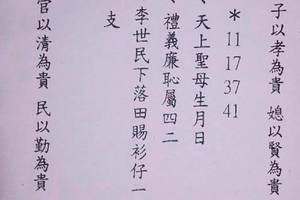 子以孝為貴 媳以賢為貴
＊
11
17
37
41
、天上聖母生月日
、禮義廉恥屬四二
李世民下落田賜衫仔一
支
官以清為貴 民以勤為貴